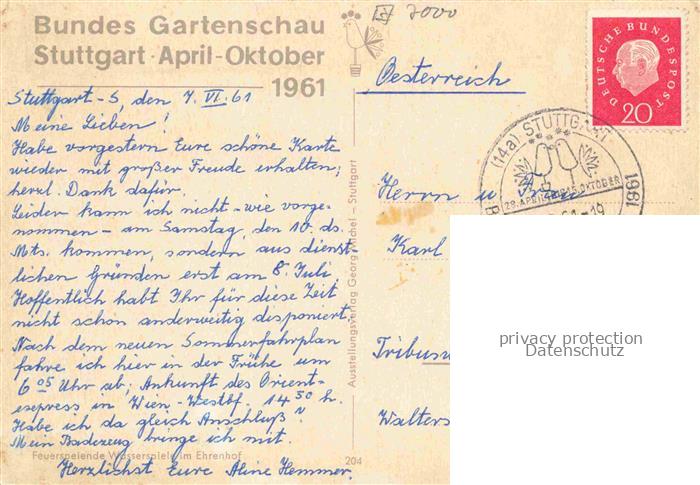 Bundes Gartenschau
Stuttgart · April-Oktober
1961
7000
Oesterreich
DEUTSCHE BUNDESPOST
20
(14a) STUTTGART
29. APRIL BIS 15. OKTOBER
1961
-19
Stuttgart-S, den 7. VI. 61
Meine Lieben!
Habe vorgestern Eure schöne Karte
wieder mit großer Freude erhalten;
herzl. Dank dafür.
Leider kann ich nicht - wie vorge-
nommen - am Samstag, den 10. ds.
Mts. kommen, sondern aus dienst-
lichen Gründen erst am 8. Juli
Hoffentlich habt Ihr für diese Zeit
nicht schon anderweitig disponiert.
Nach dem neuen Sommerfahrplan
fahre ich hier in der Frühe um
6 05 Uhr ab; Ankunft des Orient-
espress in Wien-Westbf. 14 50 h.
Habe ich da gleich Anschluß?
Mein Badezeug bringe ich mit.
Feuerspeiende Wasserspiele im Ehrenhof
204
Herzlichst Eure Aline Hemmer.
Ausstellungsverlag Georg Michel - Stuttgart
Herrn u.
Karl
Tribun
Walters
privacy protection
Datenschutz